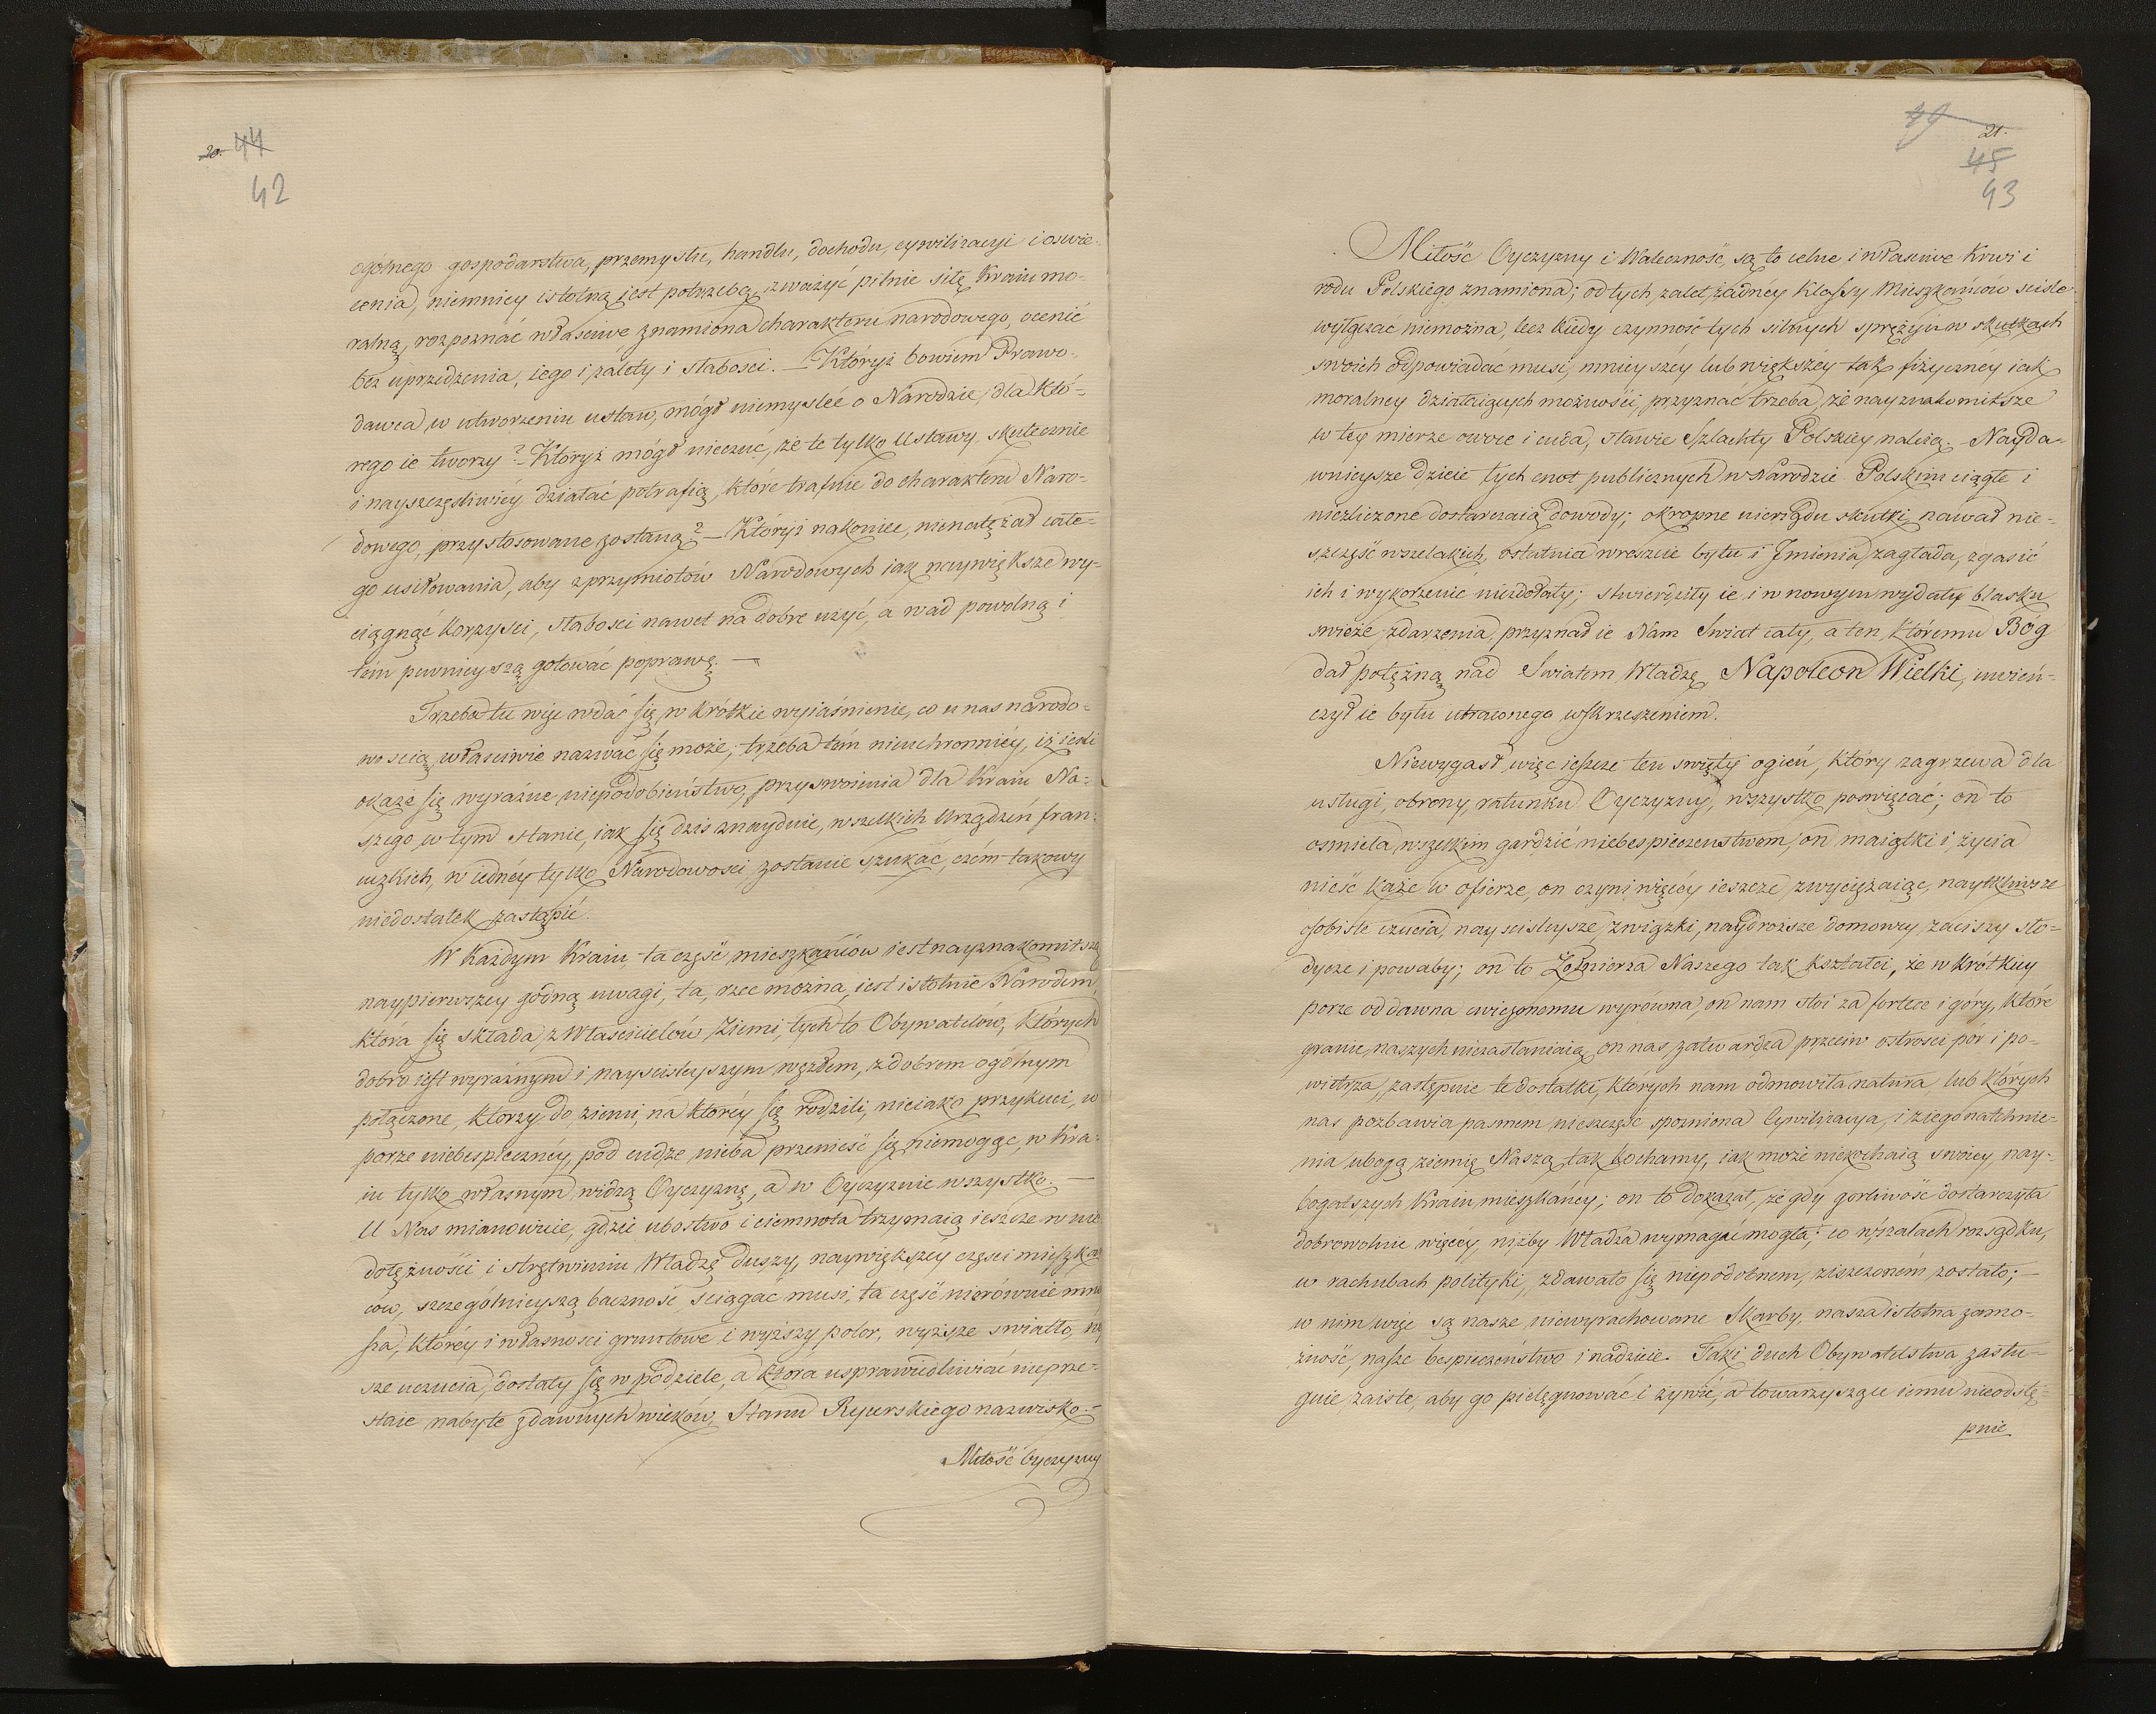 20. 44
42
ogólnego gospodarstwa, przemysłu, handlu, dochodu, cywilizacyi i oswie-
cenia, niemniey istotną jest potrzebą, zważyć pilnie siłę Kraiu mo-
ralną, rozpoznać własciwe znamiona charakteru narodowego, ocenić
bez uprzedzenia, iego i zalety i słabosci. — Któryż bowiem Prawo-
dawca w utworzeniu ustaw, mógł niemysléć o Narodzie, dla któ-
rego ie tworzy? — Któryż mógł nieczuć, że te tylko Ustawy skutecznie
i nayszczęśliwiéy działać potrafią, które trafnie do charakteru Naro-
dowego, przystosowane zostaną? — Któryż nakoniec, nienatężał całe-
go usiłowania, aby z przymiotów Narodowych iak naywiększe wy-
ciągnąć korzysci, słabosci nawet na dobre użyć, a wad powolną i
tém pewnieyszą gotować poprawę. —
Trzeba tu więc wdać się w krótkie wyiaśnienie, co u nas narodo-
woscią własciwie nazwać się może; trzeba tém nieuchronniéy, iż ieśli
okaże się wyraźne niepodobieństwo, przyswoienia dla Kraiu Na-
szego w tym stanie, iak się dzis znayduie, wszelkich Urządzeń fran-
cuzkich, w iednéy tylko Narodowosci zostanie szukać, czém takowy
niedostatek zastąpić.
W każdym Kraiu ta część mieszkańców iest nayznakomitszą
naypierwszey godną uwagi, ta, rzec można, iest istotnie Narodem,
która się składa z Własciecielów Ziemi, tych to Obywatelów, których
dobro iest wyraźnym i nayscisleyszym węzłem, z dobrem ogólnym
połączone, ktorzy do ziemi, na któréy się rodzili, nieiako przykuci, w
porze niebespieczney, pod cudze nieba przenieść się niemogąc, w Kra-
iu tylko własnym widzą Oyczyznę, a w Oyczyznie wszystko. —
U Nas mianowicie, gdzie ubostwo i ciemnota trzymaią ieszcze w nie
dołężności i strętwieniu Władzę duszy, naywiększéy częsci mieszkań
ców, szczególnieyszą baczność sciągać musi, ta część nierównie mniey
sza, któréy i własnosci gruntowe i wyższy polor, wyższe swiatło,
sze uczucia, dostały się w podziele, a która usprawiedliwiać nieprze-
staie nabyte z dawnych wieków, Stanu Rycerskiego nazwisko. —
Miłość Oyczyzny
21.
45
43
Miłość Oyczyzny i Waleczność, są to celne i własciwe Krwi i
rodu Polskiego znamiona; od tych zalet, żadney Klassy Mieszkańców sciśle
wyłączać niemożna, lecz kiedy czynność tych silnych sprężyn w skutkach
swoich odpowiadać musi, mnieyszéy lub większéy tak fizycznéy iak
moralney działaiących możności, przyznać trzeba, że nayznakomitsze
w tey mierze owoce i cuda, sławie Szlachty Polskiey należą. — Nayda-
wnieysze dzieie tych cnot publicznych w Narodzie Polskim ciągłe i
niezliczone dostarczaią dowody; okropne nierządu skutki, nawał nie-
szczęść wszelakich, ostatnia wreszcie bytu i Imienia zagłada, zgasić
ich i wykorzenić niezdołały; stwierdziły ie i w nowym wydały blasku
swieże zdarzenia, przyznał ie Nam Swiat cały, a ten, któremu Bóg
dał potężną nad Swiatem Władzę, Napoleon Wielki, uwień-
czył ie bytu utraconego wskrzeszeniem.
Niewygasł więc ieszcze ten swięty ogień, który zagrzewa dla
usługi, obrony, ratunku Oyczyzny, wszystko poswięcać; on to
osmiela wszelkim gardzić niebespieczenstwem, on maiątki i życia
nieść każe w ofierze, on czyni więcéy ieszcze zwyciężaiąc, naytkliwsze
osobiste czucia, nayscisleysze związki, naydroższe domowey zaciszy sło-
dycze i powaby; on to Żołnierza Naszego tak kształci, że w krótkiey
porze od dawna cwiczonemu wyrówna, on nam stoi za fortece i góry, które
granic naszych niezasłaniaią, on nas zatwardza przeciw ostrosci pór i po-
wietrza, zastępuie te dostatki, których nam odmowiła natura, lub których
nas pozbawia pasmem nieszczęść spozniona Cywilizacya, i z iego natchnie-
nia ubogą ziemię Naszą tak kochamy, iak może niekochaią swoiey, nay-
bogatszych Kraiu mieszkańcy; on to dokazał, że gdy gorliwość dostarczyła
dobrowolnie więcéy, niżby Władza wymagać mogła; co w szalach rozsądku,
w rachubach polityki, zdawało się niepodobnem, ziszczoném zostało; —
w nim więc są nasze niewyrachowane Skarby, nasza istotna zamo-
żność, nasze bespieczeństwo i nadzieie. Taki duch Obywatelstwa zasłu-
guie zaiste, aby go pielęgnować i żywić, a towarzyszące iemu nieodstę-
pnie